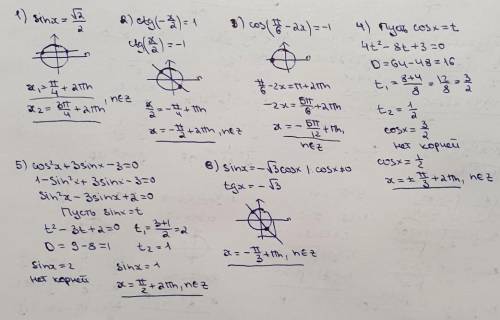 1) sinx = √2/2
x₁ = π/4 + 2πn
x₂ = 3π/4 + 2πn, n∈z
2) ctg(-x/2) = 1
ctg(x/2) = -1
x/2 = -π/4 + πn
x = -π/2 + 2πn, n∈z
3) cos(π/6 - 2x) = -1
π/6 - 2x = π + 2πn
-2x = 5π/6 + 2πn
x = -5π/12 + πn,
n∈z
4) Пусть cosx = t
4t² - 8t + 3 = 0
D = 64 - 48 = 16
t₁ = 8+4/8 = 12/8 = 3/2
t₂ = 1/2
cosx = 3/2
нет корней
cosx = 1/2
x = ± π/3 + 2πn, n∈z
5) cos²x + 3sinx - 3 = 0
1 - sin²x + 3sinx - 3 = 0
sin²x - 3sinx + 2 = 0
Пусть sinx = t
t² - 3t + 2 = 0 t₁ = 3+1/2 = 2
D = 9 - 8 = 1 t₂ = 1
sinx = 2 sinx = 1
нет корней x = π/2 + 2πn, n∈z
6) sinx = -√3cosx | cosx ≠ 0
tgx = -√3
x = -π/3 + πn, n∈z